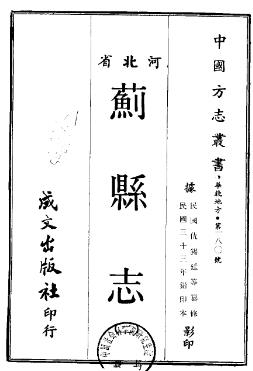 中國方志叢書·華北地方·第一八〇號
據
民國仇錫廷等纂修
民國三十三年鉛印本
影印
河北省
薊縣志
成文出版社印行